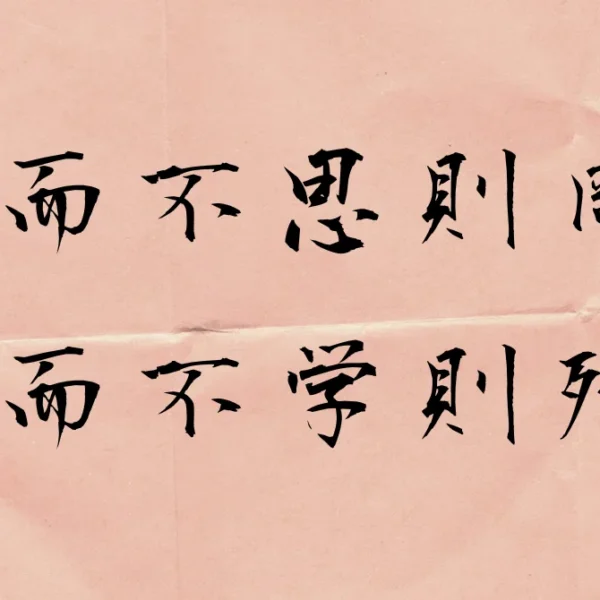 而不思則
而不学則